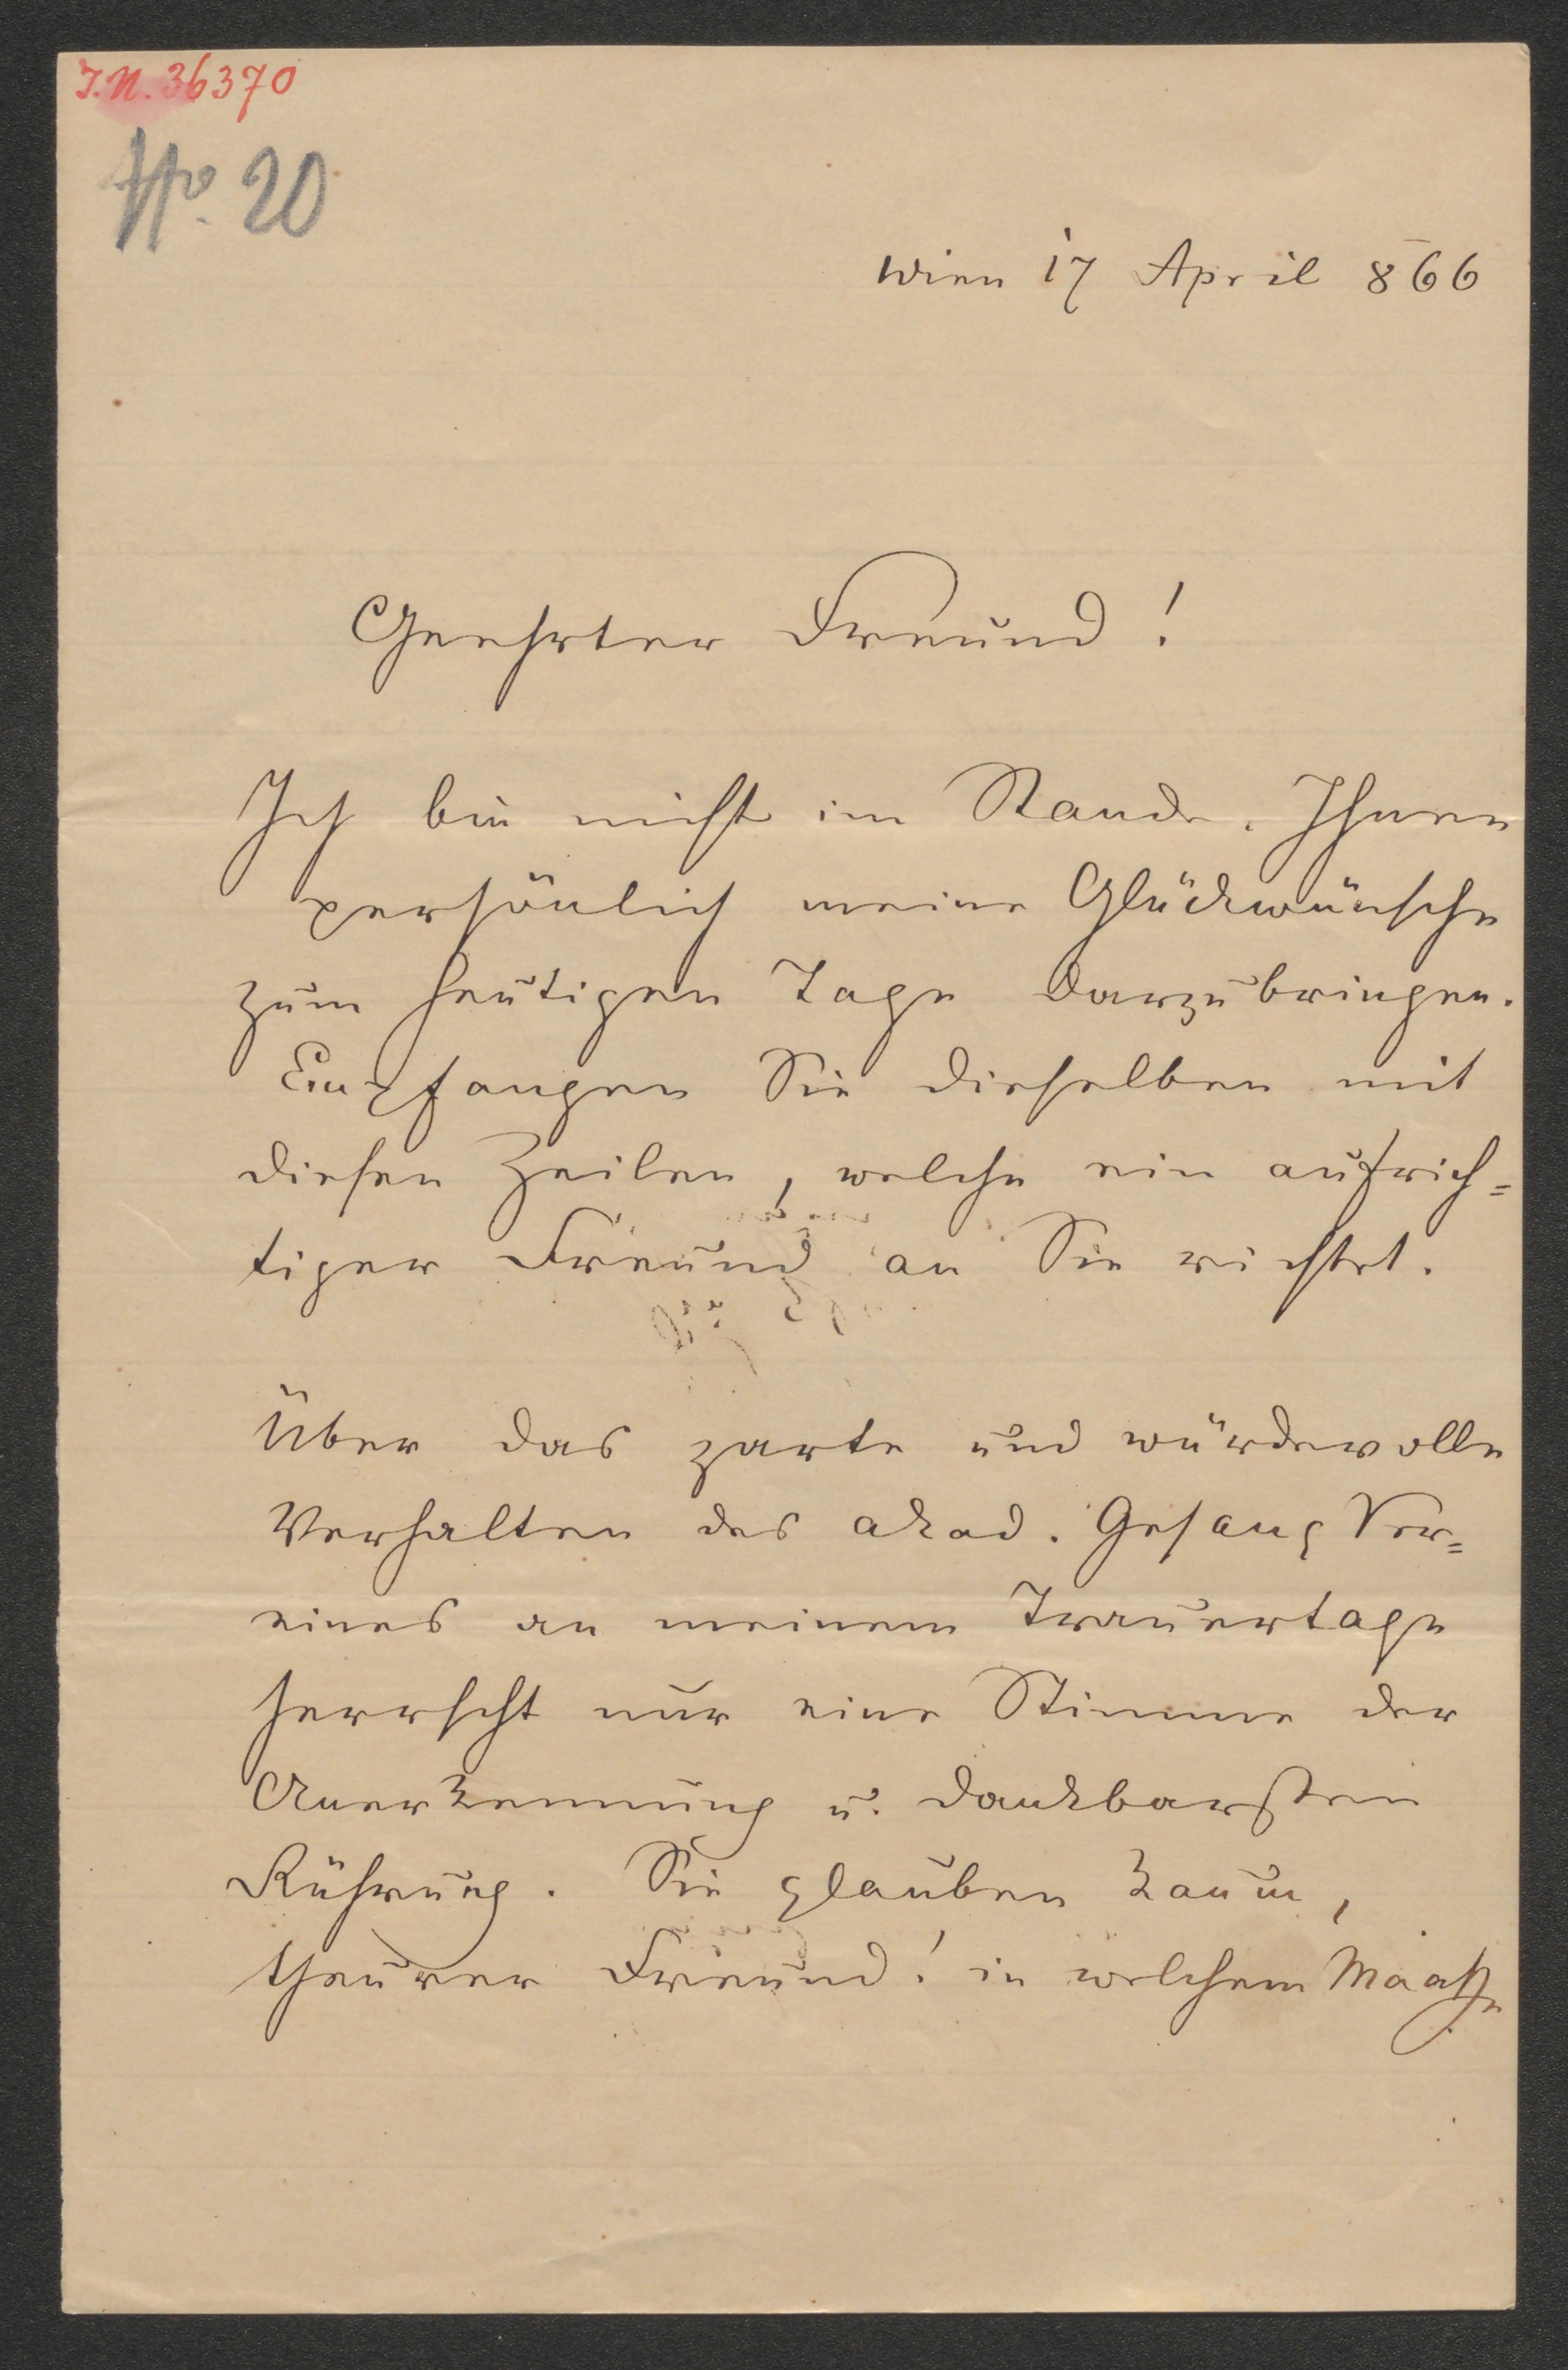 I.N. 36370
No. 20
Wien 17 April 866
Geehrter Freund!
Ich bin nicht im Stande, Ihnen
persönlich meine Glückwünsche
zum heutigen Tage darzubringen.
Empfangen Sie dieselben mit
diesen Zeilen, welche ein aufrich=
tiger Freund an Sie richtet.
Über das zarte und würdevolle
Verhalten des akad. Gesang Ver=
eines an meinem Trauertage
herrscht nur eine Stimme der
Anerkennung u. dankbarsten
Rührung. Sie glauben kaum,
theurer Freund! in welchem Maaße